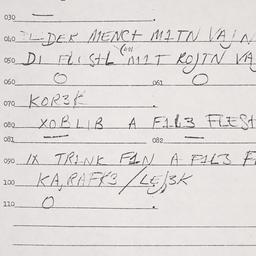 030 —
040 DER MENCH M1TN VAJN
050 DI FL1SHL M1T ROJTN VA
060 O 061 O
070 KOR3K
080 XOBLIB A F1L3 FLEST
081 — 082 —
090 IX TRINK F1N A F1L3 F
100 KA,RAFK3/LEJ3K
110 O